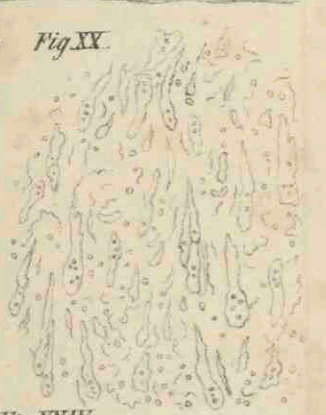 Fig. XX.